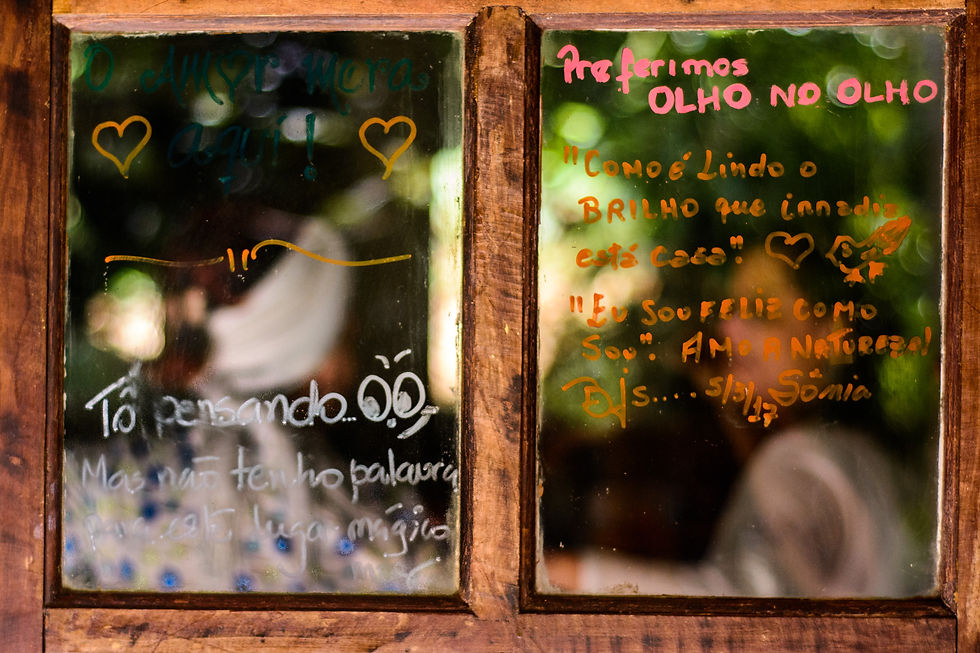 O Amor mora
aqui!
Tô pensando...
Mas não tenho palavra
para esté lugar mágico
Preferimos
OLHO NO OLHO
"COMO é Lindo o
BRILHO que innadia
está casa".
"Eu SOU FELIZ COMO
Sou". AMO A NATUREZA!
Bjs.... 5/31/17 Sônia